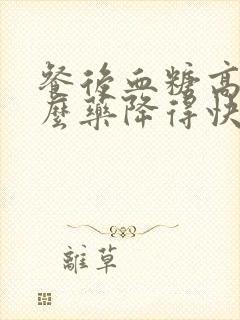 餐後血糖高
麼藥降得快
離草